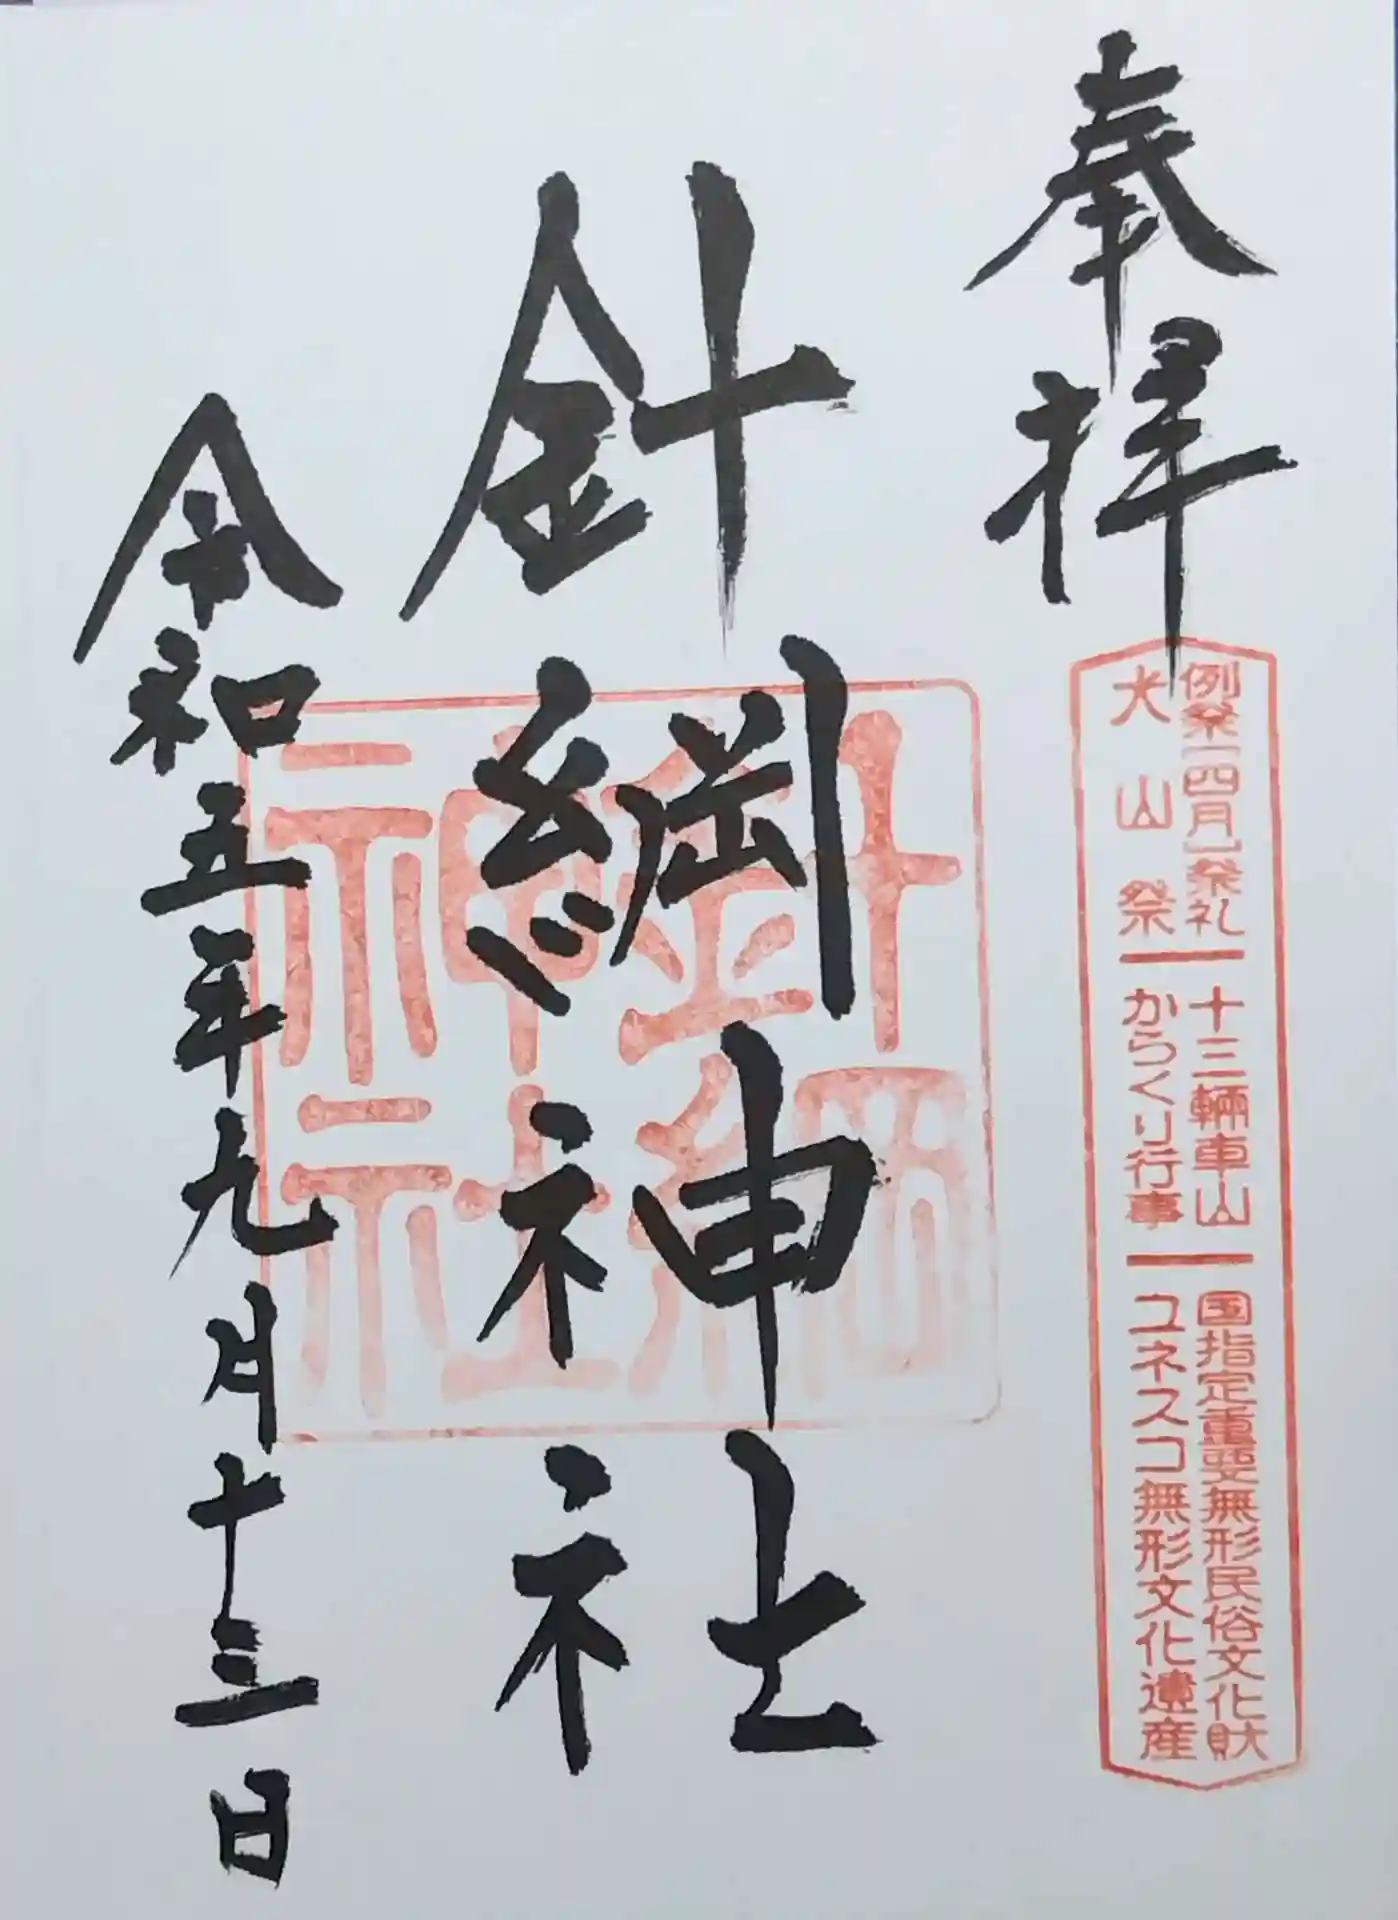 奉拝
例祭[四月]祭礼 十三輛車山 国指定重要無形民俗文化財
犬山祭 からくり行事 ユネスコ無形文化遺産
針綱神社
針綱
神社
令和五年九月十三日